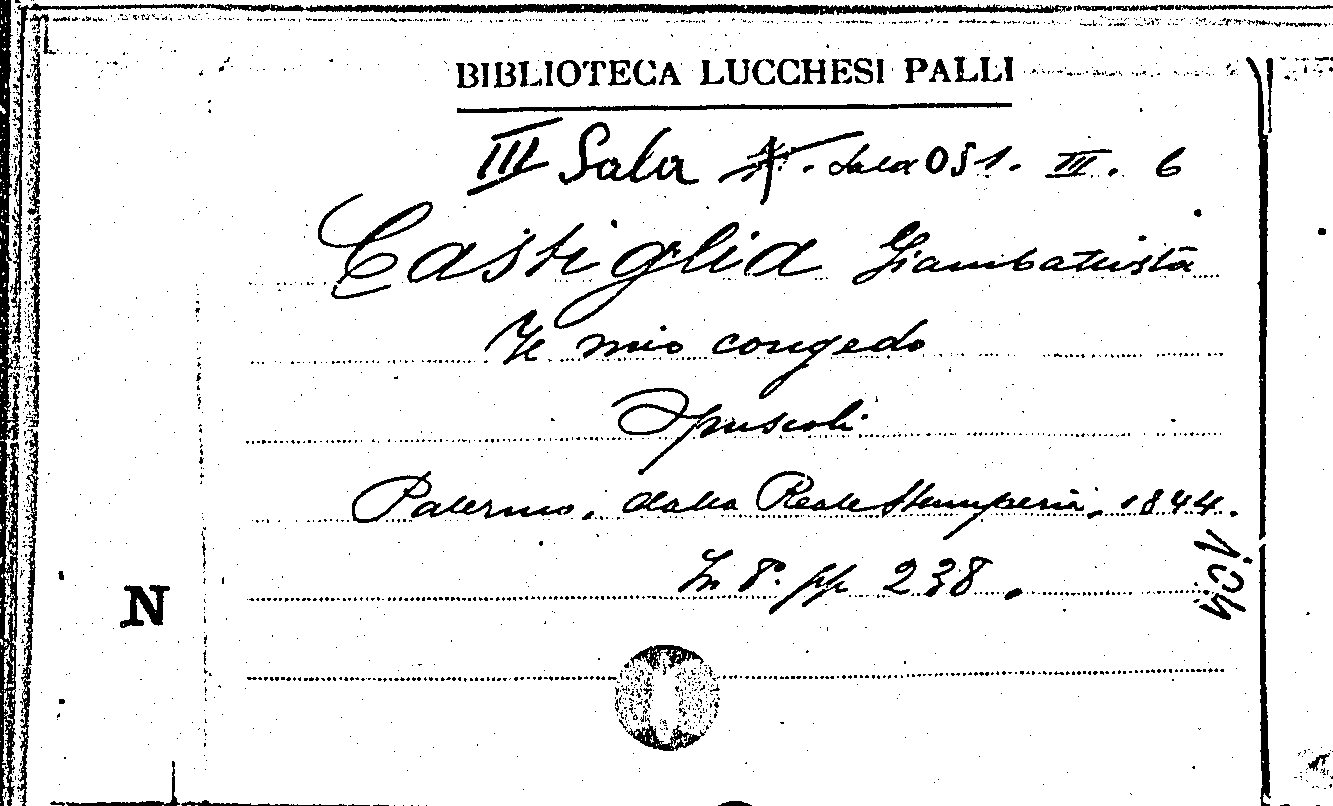 BIBLIOTECA LUCCHESI PALLI
III Sala Sala 051. III. 6
Castiglia Giambattista
Il mio congedo
Opuscoli
Palermo, dalla Reale Stamperia, 1844.
In 8º. pp 238.
N